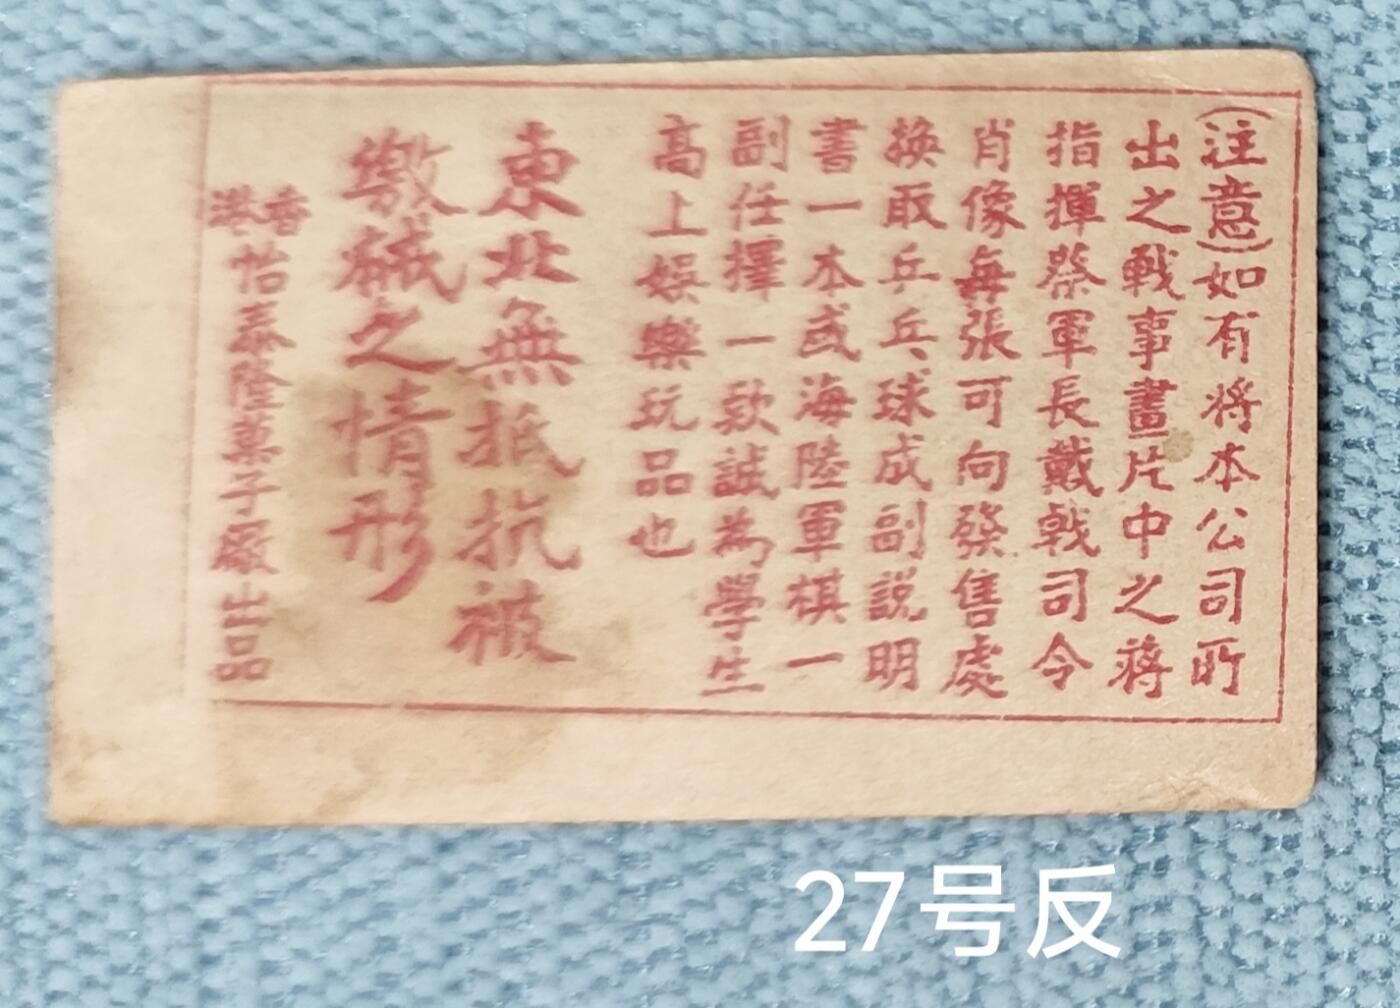 (注意)如有将本公司所
出之戰事畫片中之蔣
指揮蔡軍長戴戟司令
肖像每張可向發售處
換取乒乓球成副説明
書一本或海陸軍棋一
副任擇一款誠為學生
高上娛樂玩品也
東北無抵抗被
繳械之情形
香港怡泰隆菓子廠出品
27号反